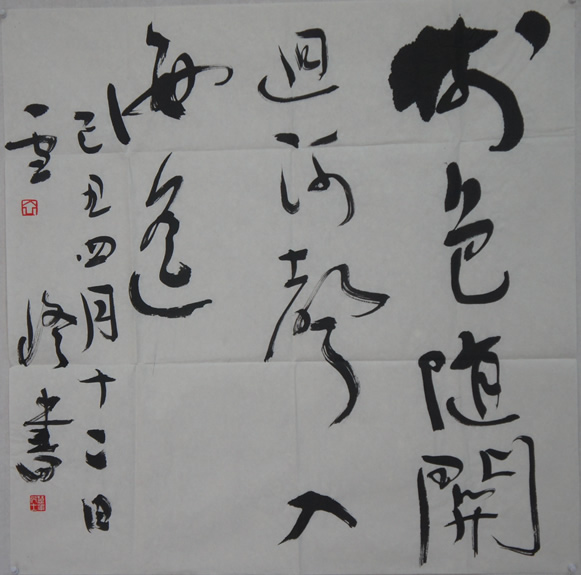 树色随開
迥河聲入
海遙
己丑四月十二日
雪峰書